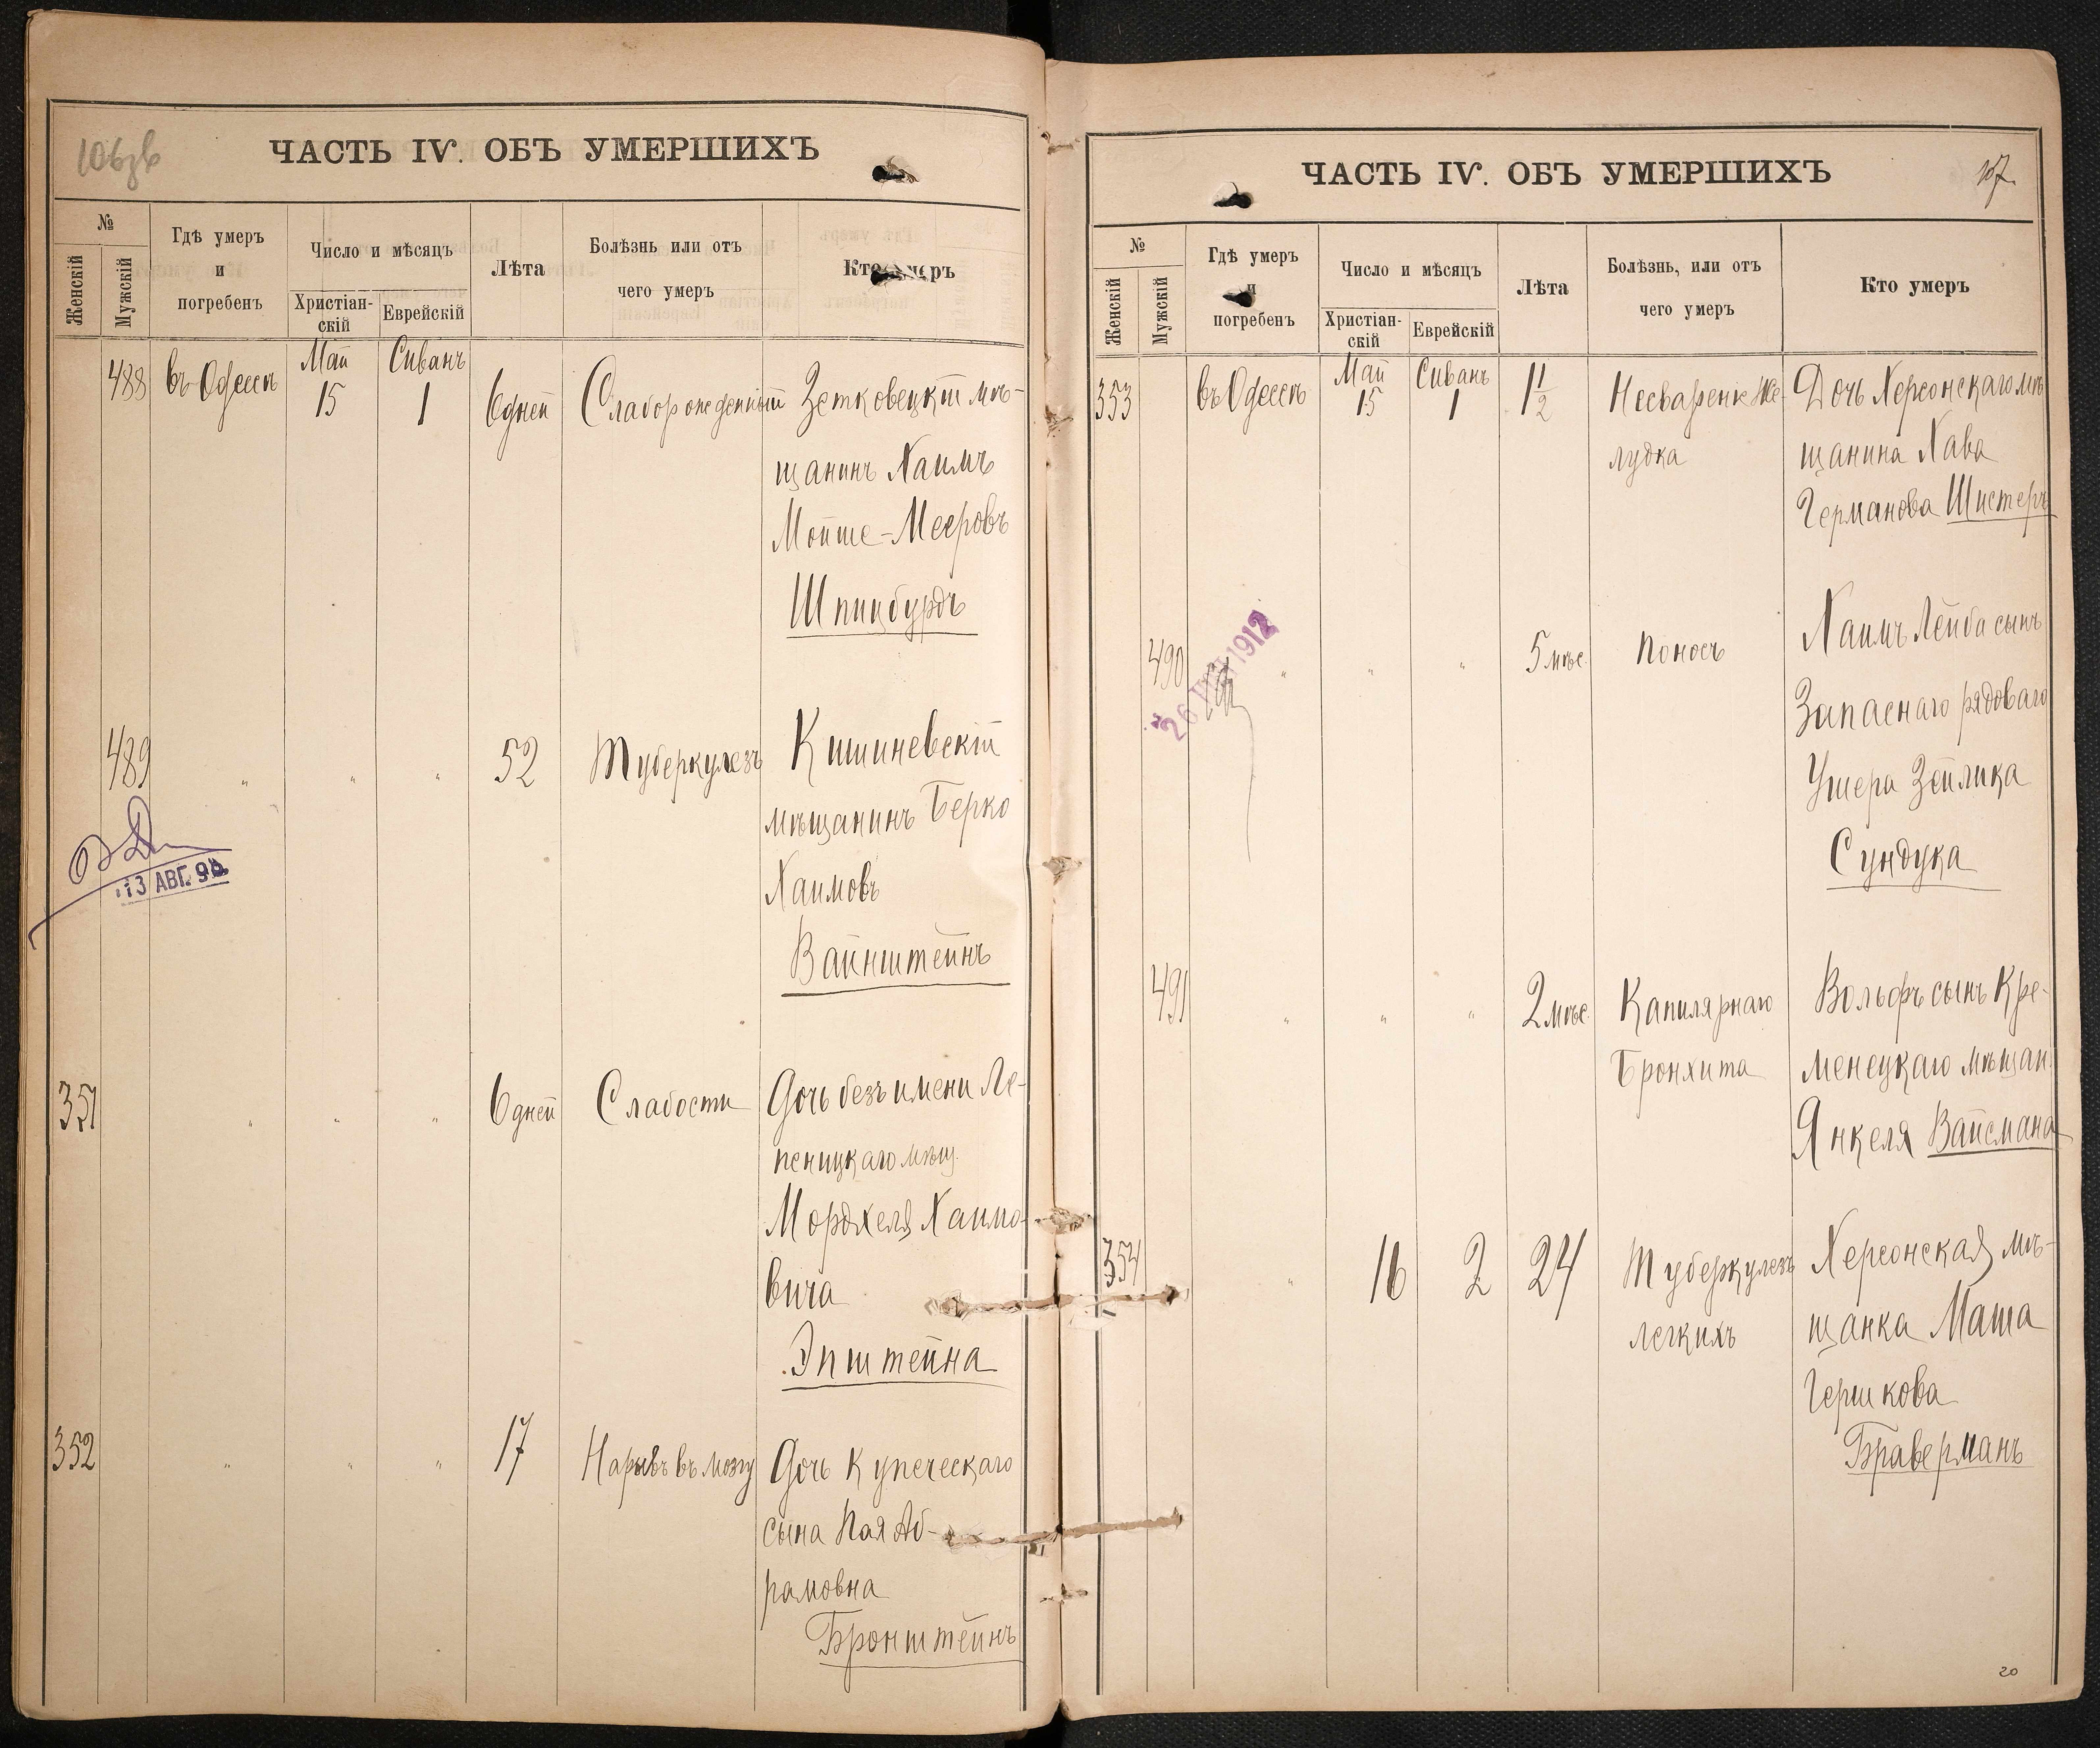 106 об
ЧАСТЬ IV. ОБЪ УМЕРШИХЪ
№
Женскій
Мужскій
Гдѣ умеръ
и
погребенъ
Число и мѣсяцъ
Христіан-
скій
Еврейскій
Лѣта
Болѣзнь или отъ
чего умеръ
Кто умеръ
488
въ Одессѣ
Май
15
Сиванъ
1
6 дней
Слаборожденный
Зетковецкій мѣ-
щанинъ Хаимъ
Мойше-Мееровъ
Шпицбурдъ
489
"
"
"
52
Туберкулезъ
Кишиневскій
мѣщанинъ Берко
Хаимовъ
Вайнштейнъ
13 АВГ.
351
"
"
"
6 дней
Слабости
Дочь безъ имени Ле-
пеницкаго мѣщ.
Мордхеля Хаимо-
вича
Эпштейна
352
"
"
"
17
Нарывъ въ мозгу
Дочь Купеческаго
сына Пая Аб-
рамовна
Бронштейнъ
ЧАСТЬ IV. ОБЪ УМЕРШИХЪ
107.
№
Женскій
Мужскій
Гдѣ умеръ
и
погребенъ
Число и мѣсяцъ
Христіан-
скій
Еврейскій
Лѣта
Болѣзнь, или отъ
чего умеръ
Кто умеръ
353
въ Одессѣ
Май
15
Сиванъ
1
1 1/2
Несвареніе Же-
лудка
Дочь Херсонскаго мѣ
щанина Хава
Германова Шистеръ
490
26 1912
"
"
"
5 мѣс.
Поносъ
Хаимъ Лейба сынъ
Запаснаго рядоваго
Ушера Зейлика
Сундука
491
"
"
"
2 мѣс.
Капилярнаго
Бронхита
Вольфъ сынъ Кре-
менецкаго мѣщан.
Янкеля Вайсмана
354
"
16
2
24
Туберкулезъ
легкихъ
Херсонская мѣ-
щанка Маша
Гершкова
Браверманъ
20